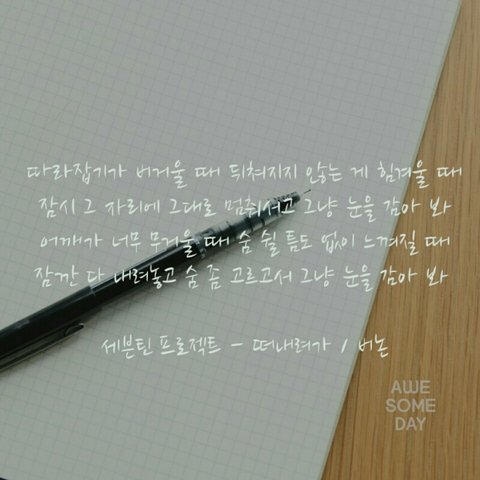 따라잡기가 버거울 때 뒤쳐지지 않는 게 힘겨울 때
잠시 그 자리에 그대로 멈춰서고 그냥 눈을 감아 봐
어깨가 너무 무거울 때 숨 쉴 틈도 없이 느껴질 때
잠깐 다 내려놓고 숨 좀 고르고서 그냥 눈을 감아 봐
세븐틴 프로젝트 - 떠내려가 / 버논
AWE
SOME
DAY